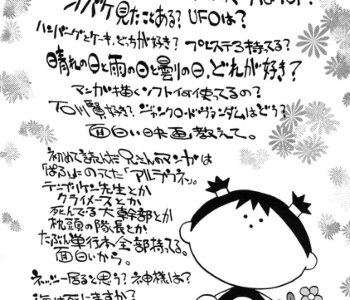 オバケ見たことある?UFOは?
ハンバーグとケーキ、どっちが好き?プレステ3持てる?
晴れの日と雨の日と曇りの日、どれが好き?
マンガ描くソフト何使ってるの?
石川賢好き?ジャンクロードヴァンダムはどう?
面白い映画教えて。
初めて読んだ兄さんマンガは
「ぱる」にのってた「アルラウネ」。
テンプルケン先生とか
クライメースとか
死んでる大幹部とか
枕頭の隊長とか
たぶん単行本全部持てる。
面白いから。
ネッシー居ると思う?神様は?